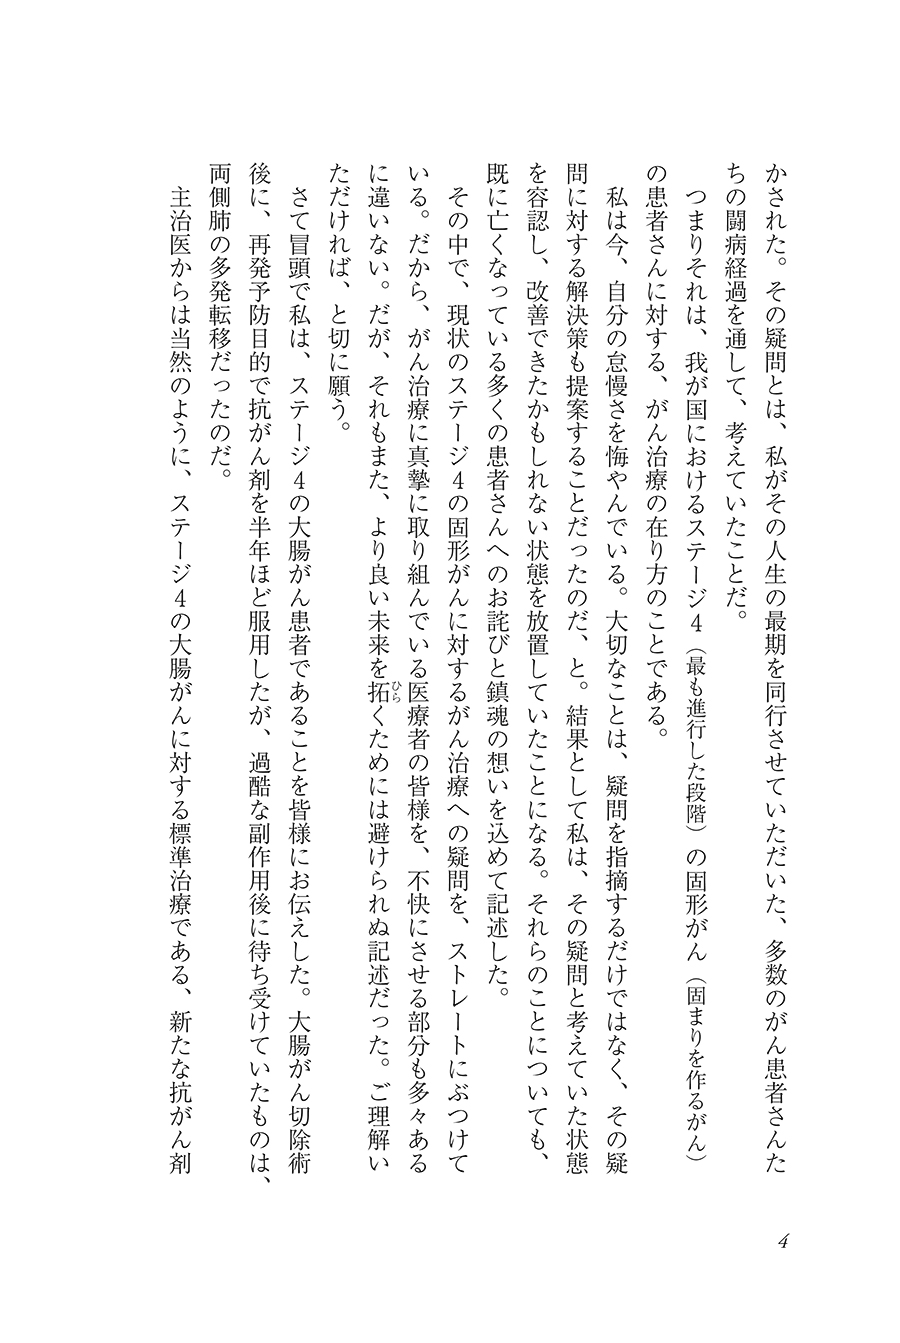 かされた。その疑問とは、私がその人生の最期を同行させていただいた、多数のがん患者さんた
ちの闘病経過を通して、考えていたことだ。
　つまりそれは、我が国におけるステージ4（最も進行した段階）の固形がん（固まりを作るがん）
の患者さんに対する、がん治療の在り方のことである。
　私は今、自分の怠慢さを悔やんでいる。大切なことは、疑問を指摘するだけではなく、その疑
問に対する解決策も提案することだったのだ、と。結果として私は、その疑問と考えていた状態
を容認し、改善できたかもしれない状態を放置していたことになる。それらのことについても、
既に亡くなっている多くの患者さんへのお詫びと鎮魂の想いを込めて記述した。
　その中で、現状のステージ4の固形がんに対するがん治療への疑問を、ストレートにぶつけて
いる。だから、がん治療に真摯に取り組んでいる医療者の皆様を、不快にさせる部分も多々ある
に違いない。だが、それもまた、より良い未来を拓ひらくためには避けられぬ記述だった。ご理解い
ただければ、と切に願う。
　さて冒頭で私は、ステージ4の大腸がん患者であることを皆様にお伝えした。大腸がん切除術
後に、再発予防目的で抗がん剤を半年ほど服用したが、過酷な副作用後に待ち受けていたものは、
両側肺の多発転移だったのだ。
　主治医からは当然のように、ステージ4の大腸がんに対する標準治療である、新たな抗がん剤
4